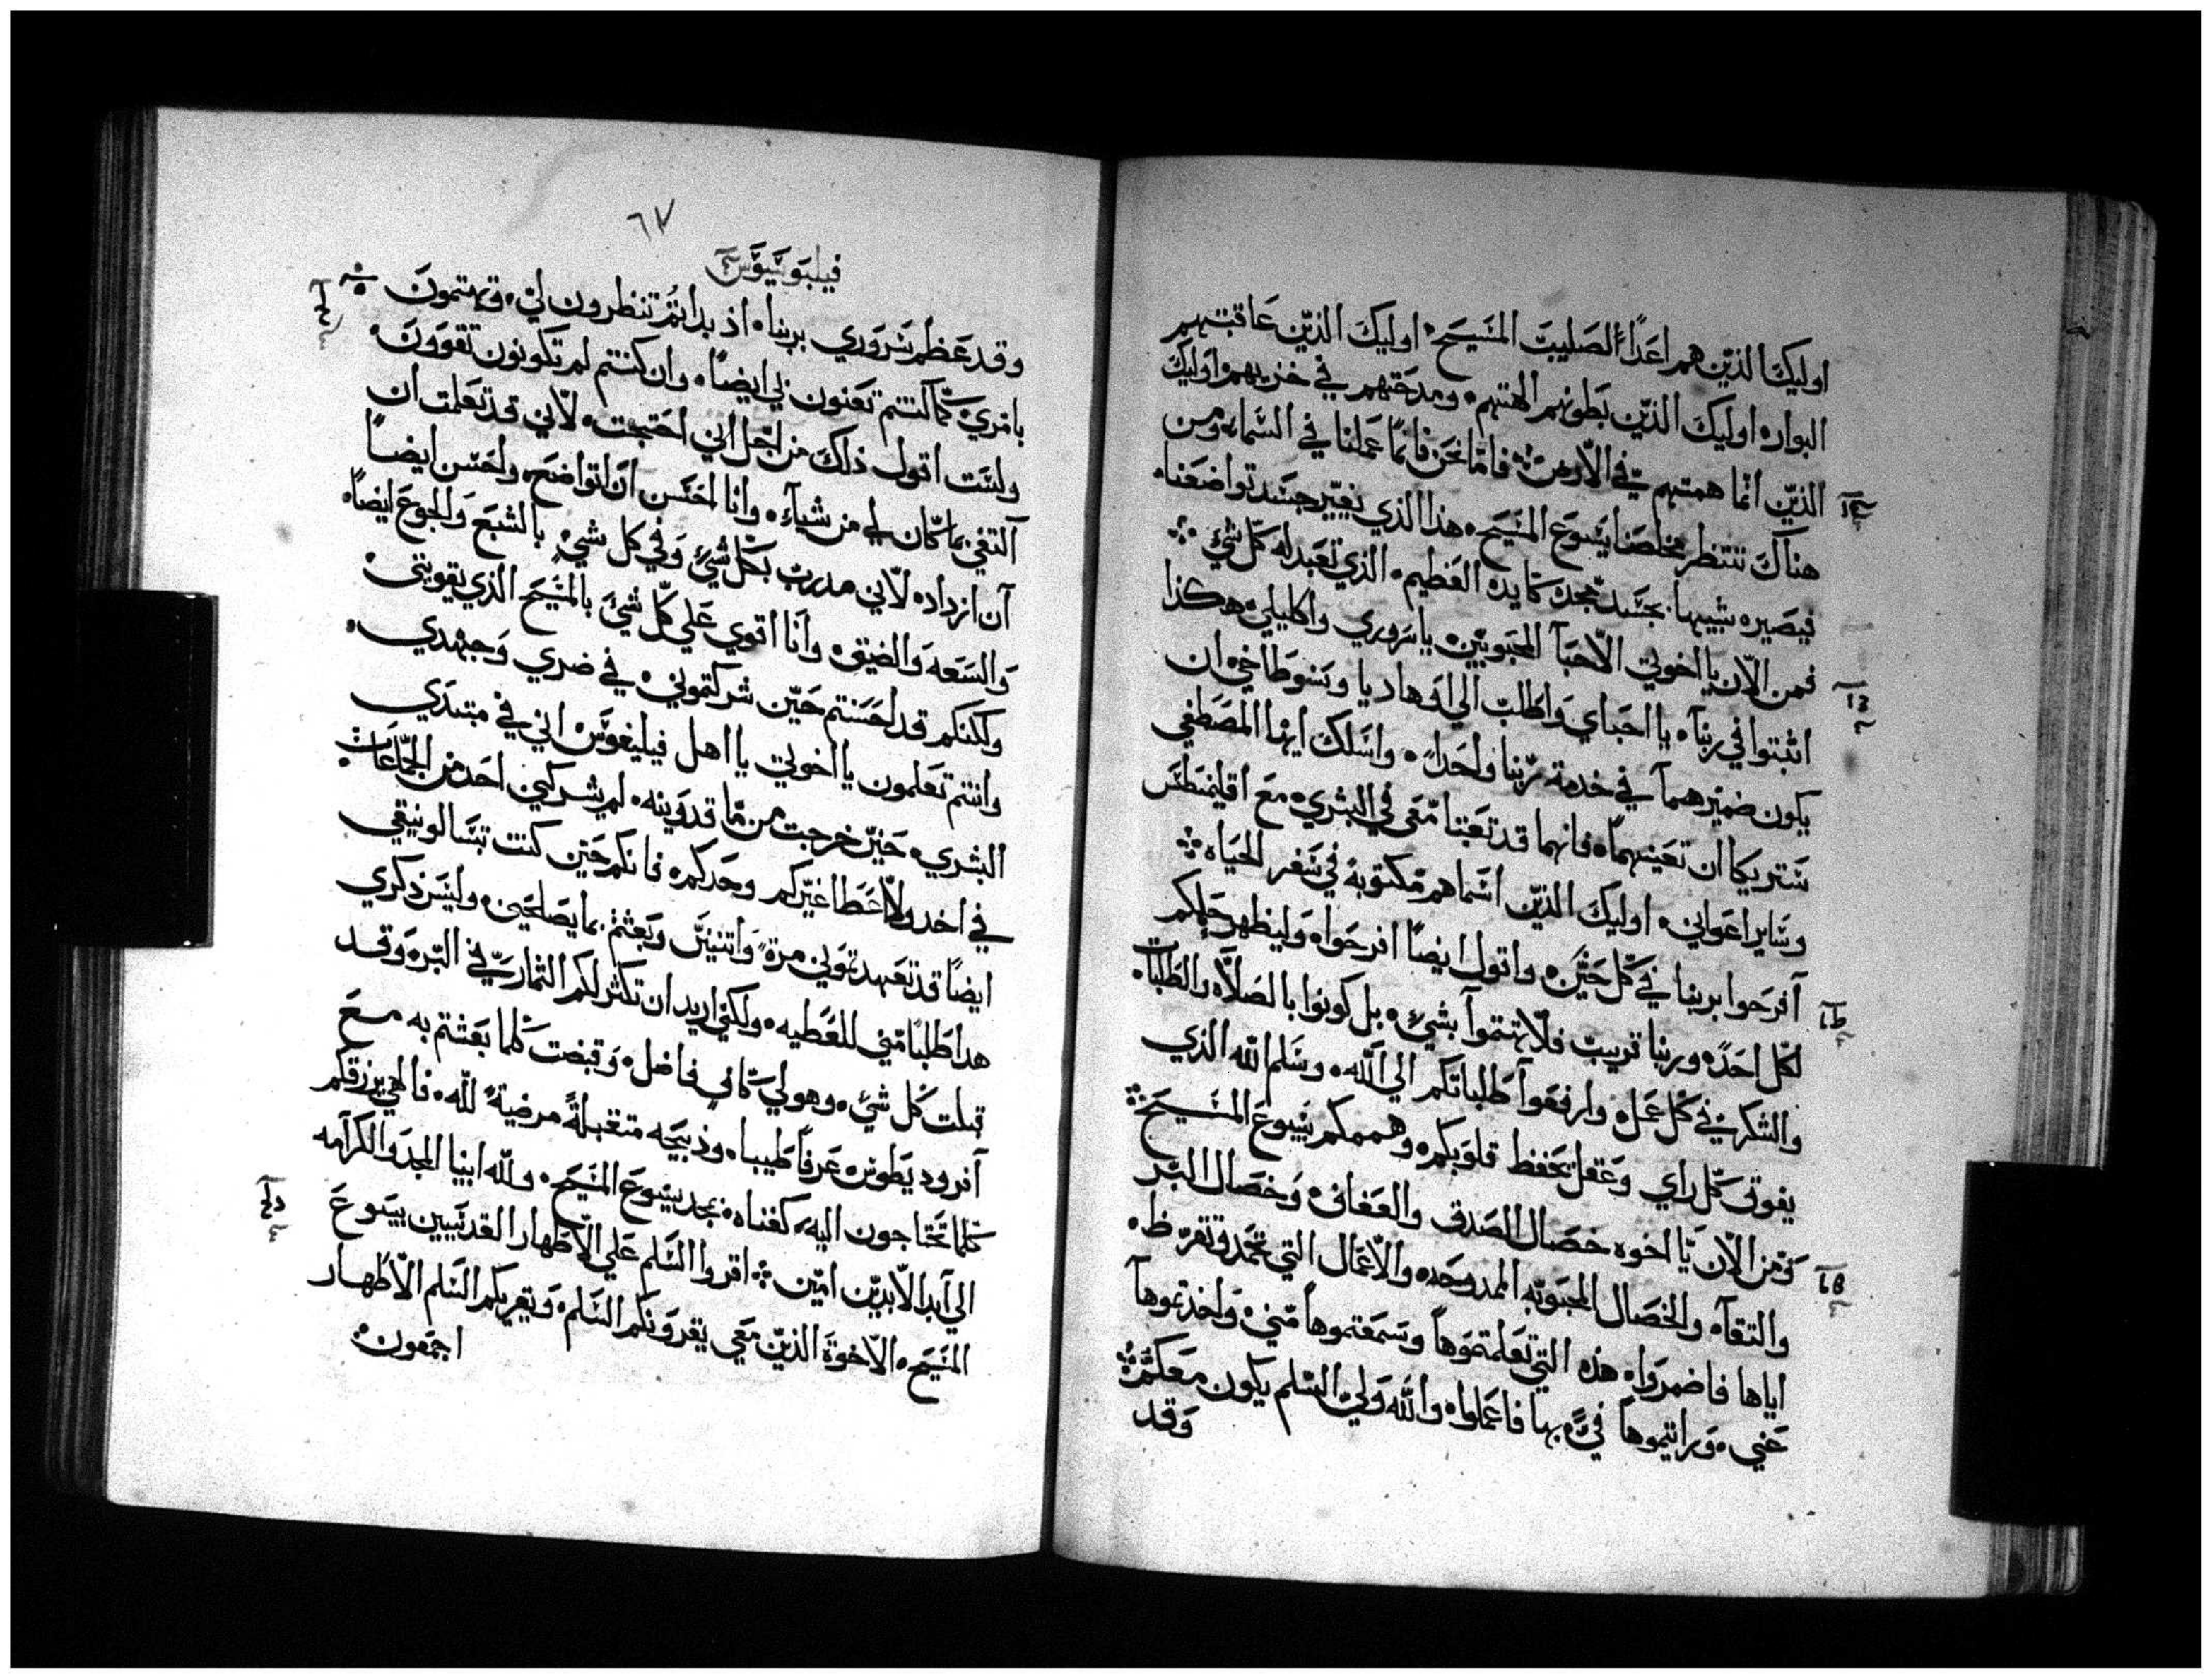 اوليك الذين هم اعدآء الصليب المسيح. اوليك الذين عاقبتهم
البوار. اوليك الذين بطونهم الهتهم. ومدحتهم في خزيهم. اوليك
الذين انما همتهم في الارض. فاما نحن فانما عملنا في السماء. ومن
هناك ننتظر مخلصنا يسوع المسيح. هذا الذي يغيّر جسد تواضعنا.
فيصيره شبيها بجسد مجده كايده العظيم. الذي تعبد له كل شي
فمن الان يا اخوتي الاحبآ المحبوبين. يا سروري واكليلي. هكذا
اثبتوا في ربنآ. يا احباي واطلب الي اوهاديا وسنوطاخي ان
يكون ضميرهما في خدمة ربنا واحدا. واسلك ايها المصطفي
شتريكا ان تعينهما. فانهما قد تعبتا معي في البشري. مع اقليمنطس
وساير اعواني. اوليك الذين اسماهم مكتوبة في سفر الحياه
آفرحوا بربنا في كل حين. واقول ايضاً افرحوا. وليظهر حلمكم
لكل احد. وربنا قريب فلا تهتموا بشيء. بل كونوا بالصلاه والطلبات.
والشكر في كل عمل. وارفعوا طلباتكم الي الله. وسلم الله الذي
يفوق كل راي وعقل يحفظ قلوبكم. وهممكم بيسوع المسيح
ومن الان يا اخوه خصال الصدق والعفاف. وخصال البر
والتقآ. والخصال المحبوبه الممدوحه. والاعمال التي تحمد وتقرّظ.
اياها فاضمروا. هذه التي تعلمتموها وسمعتموها مني. واخذتموها
عني. ورايتموها فيّ. بها فاعملوا. والله ولي السلم يكون معكم
وقد
٦٧
وقد عظم سروري بربنا. اذ بداتم تنظرون لي. وتهتمون
بامري. كما كنتم تعنون بي ايضاً. وان كنتم لم تكونون تقوون.
ولست اقول ذلك من اجل اني احتجت. لاني قد تعلمت ان
آكتفي بما كان لي من شياء. وانا احسن ان اتواضع. واحسن ايضاً
آن ازداد. لاني مدرب بكل شي وفي كل شي. بالشبع والجوع ايضاً.
والسعه والضيق. وانا اقوي علي كل شي بالمسيح الذي يقويني.
ولكنكم قد احسنتم حين شركتموني. في ضري وجهدي.
وانتم تعلمون يا اخوتي يا اهل فيليفوس اني في مبتدي
البشري. حين خرجت من ماقدونيه. لم يشركني احد من الجماعات
في اخد ولا عطا غيركم وحدكم. فانكم حين كنت بتسالونيقي
ايضاً قد تعهدتموني مرة واتنين وبعثتم بما يصلحني. وليس ذكري
هدا طلبا مني للعطيه. ولكني اريد ان تكثر لكم الثمار في البر. وقد
قبلت كل شي. وهو لي كافي فاضل. وقبضت كلما بعثتم به مع
آفروديطوس عرفا طيبا. وذبيحه متقبلةً مرضيةً لله. فالهي يرزقكم
كلما تحتاجون اليه كفناه. بمجد يسوع المسيح. ولله ابينا المجد والكرامه
الي آبد الابدين امين اقروا السلم علي الاطهار القديسين بيسوع
المسيح. الاخوة الذين معي يقرونكم السلم. ويقريكم السلم الاطهار
اجمعون